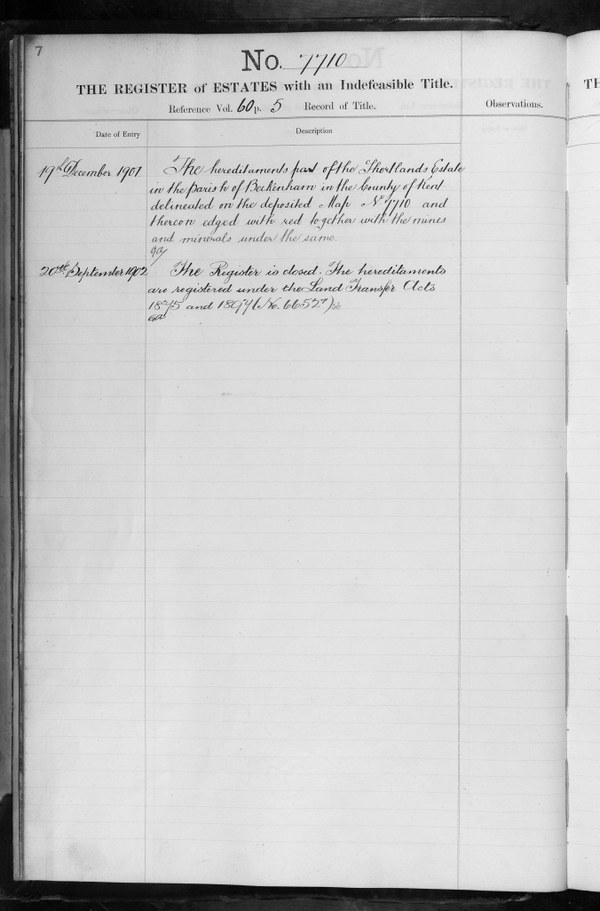 7
No. 7710
THE REGISTER of ESTATES with an Indefeasible Title.
Reference Vol. 60 p. 5 Record of Title.
Observations.
Date of Entry
Description
19th December 1901
The hereditaments part of the Shortlands Estate
in the Parish of Beckenham in the County of Kent
delineated on the deposited Map No 7710 and
thereon edged with red together with the mines
and minerals under the same.
20th September 1902
The Register is closed. The hereditaments
are registered under the Land Transfer Acts
1875 and 1897 (No. 66527)
TH